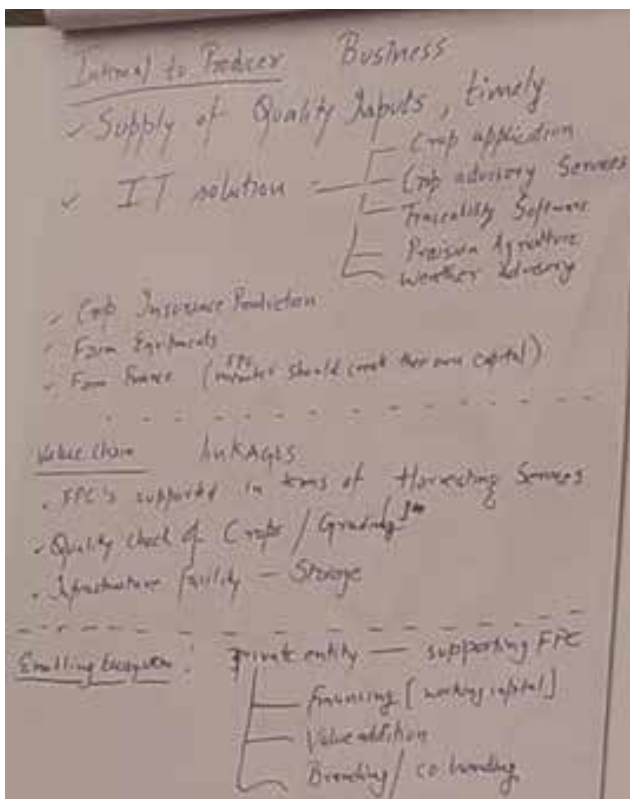 Internal to Producer Business
✓ Supply of Quality Inputs, timely
✓ IT solution
Crop application
Crop advisory Services
Traceability Software
Precision Agriculture
Weather Advisory
✓ Crop Insurance
✓ Farm Equipments
✓ Farm Finance (FPC member should their own capital)
Value chain linkAGES
• FPC's supported in terms of Harvesting Services
• Quality check of Crops / Grading
• Infrastructure facility – Storage
Enabling Ecosystem: Private entity — supporting FPC
Financing [working capital]
Value addition
Branding / co branding